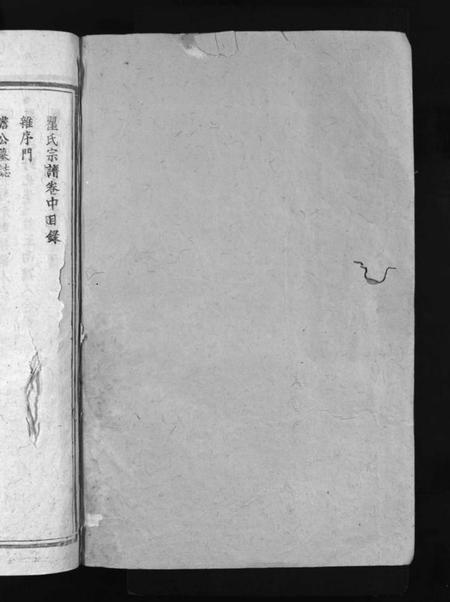 瞿氏宗譜卷中目錄
雜序門
公墓誌